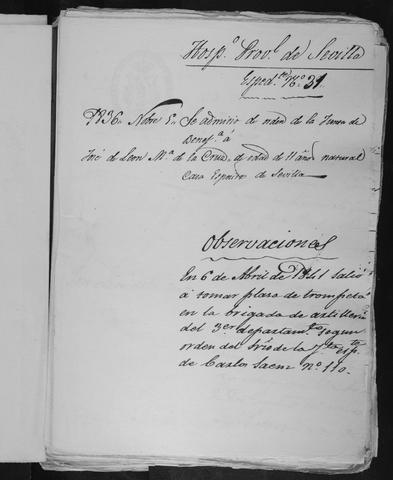 Hosp.º Prov.l de Sevilla
Esped.te Nº 31.
1836 Nobre 5 Se admitió de orden de la Junta de
Benef.ª á
José de Leon Mª de la Cruz, de edad de 11 años natural
Casa Espósitos de Sevilla
Observaciones
En 6 de Abril de 1841 salió
á tomar plaza de trompeta
en la brigada de artilleria
del 3er departamto segun
orden del Srio de la Jta
de Carlos Saenz nº 110.